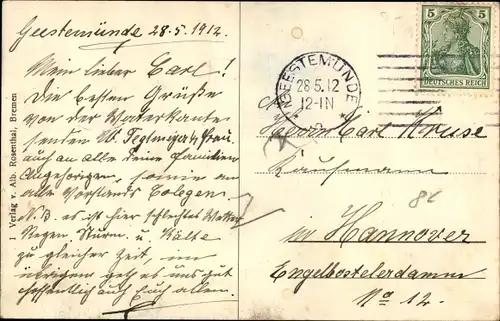 Geestemünde 28.5.1912.
Mein lieber Carl!
Die besten Grüße
von der Waterkante
senden W. Tegtmeyer u/ Frau
auch an Alle Deine Familien
Angehörigen, sowie an
alle Vorstands Colegen.
N.B. es ist hier schlechtes Wetter
Regen, Sturm u. Kälte
zu gleicher Zeit, im
übrigen geht es uns gut
hoffentlich auch Euch allen.
I Verlag v. Alb. Rosenthal, Bremen
GEESTEMÜNDE
28.5.12
12-1N
5 5
DEUTSCHES REICH
Herrn Carl Kruse
Kaufmann
in Hannover
Engelbostelerdamm
No 12.